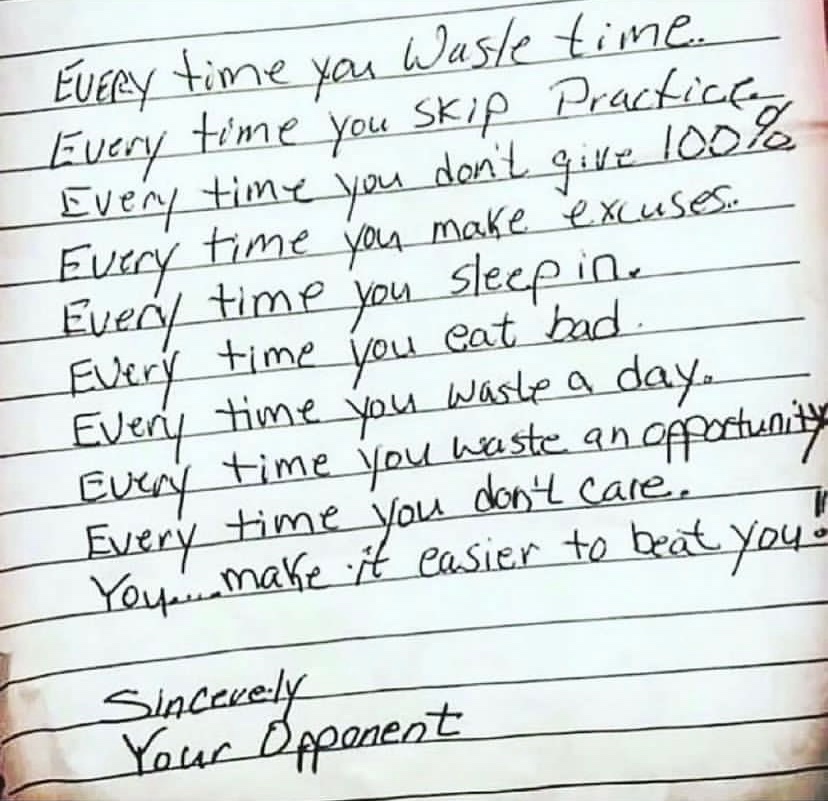 Every time you Waste time..
Every time you skip Practice
Every time you don't give 100%
Every time you make excuses..
Every time you sleep in.
Every time you eat bad.
Every time you waste a day.
Every time you waste an opportunity
Every time you don't care.
You.....make it easier to beat you!
Sincerely
Your Opponent